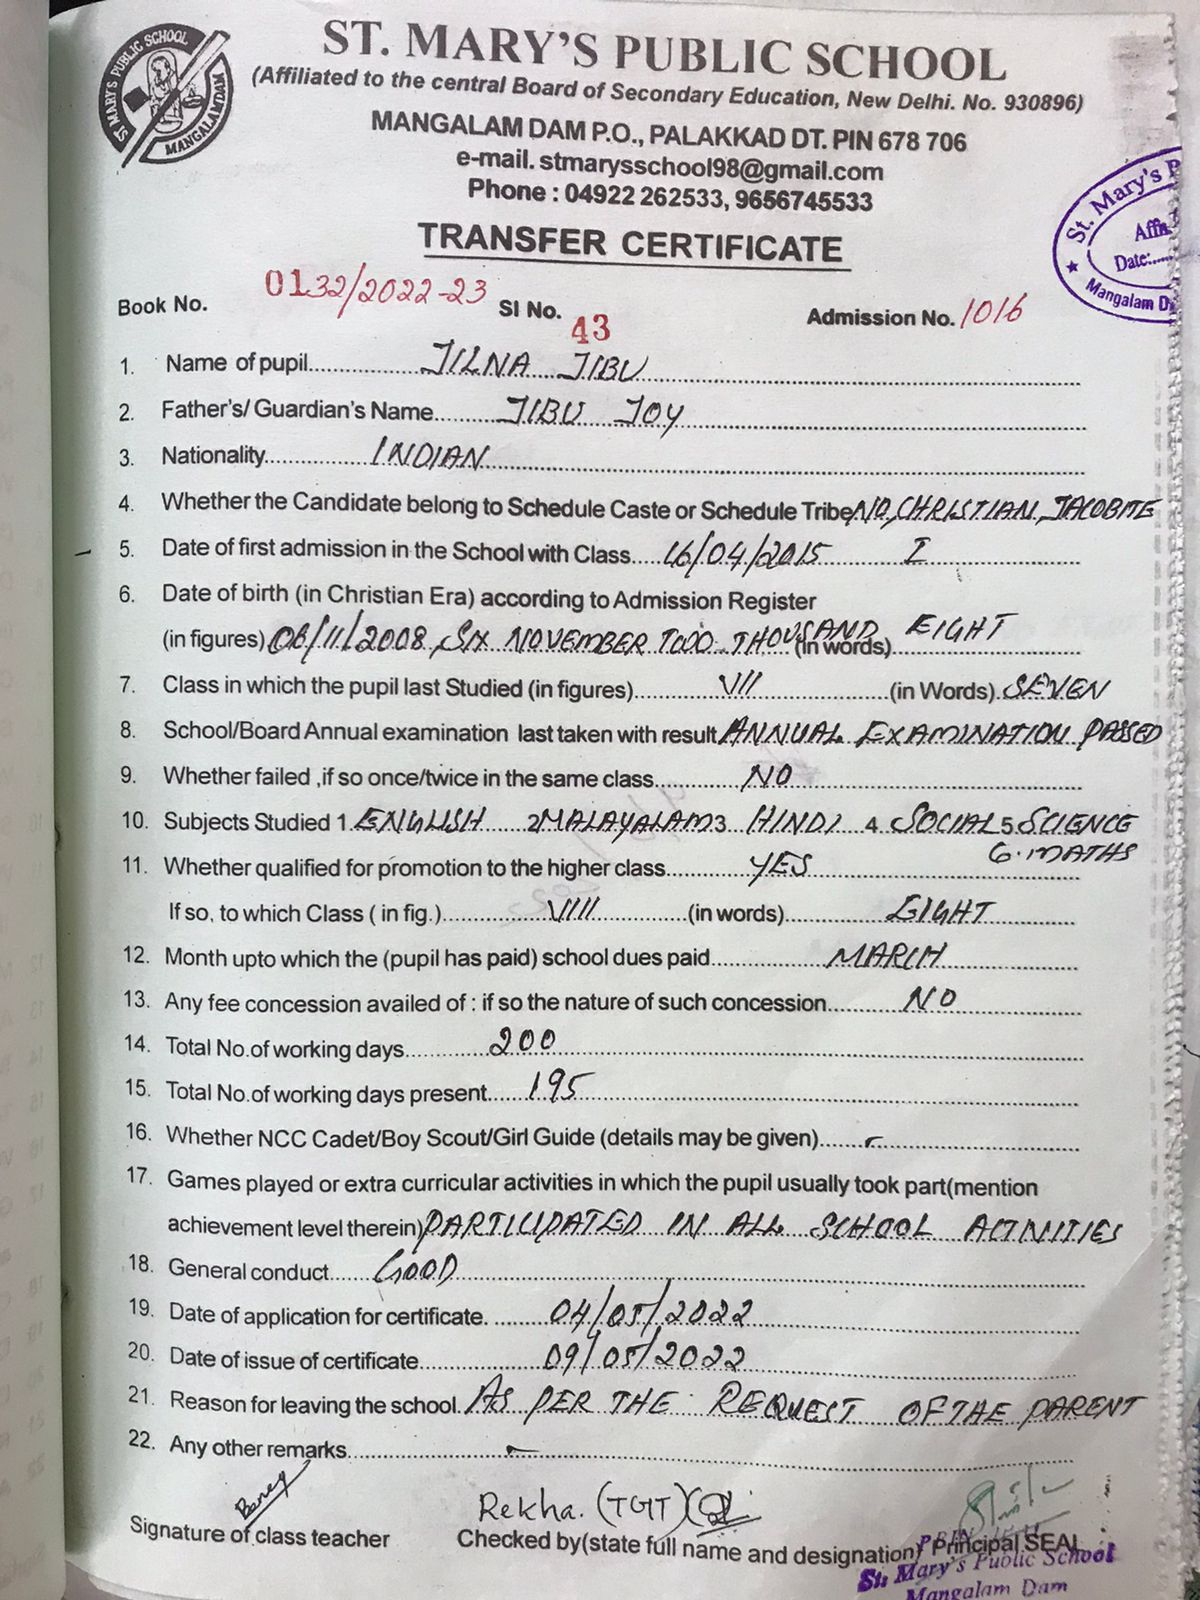 ST. MARY'S PUBLIC SCHOOL
MANGALAM DAM
ST. MARY'S PUBLIC SCHOOL
(Affiliated to the central Board of Secondary Education, New Delhi. No. 930896)
MANGALAM DAM P.O., PALAKKAD DT. PIN 678 706
e-mail. stmarysschool98@gmail.com
Phone : 04922 262533, 9656745533
St. Mary's P
Affil
Date:......
Mangalam D
TRANSFER CERTIFICATE
Book No. 0132/2022-23 SI No. 43 Admission No. 1016
1. Name of pupil JILNA JIBU
2. Father's/ Guardian's Name JIBU JOY
3. Nationality INDIAN
4. Whether the Candidate belong to Schedule Caste or Schedule Tribe NO, CHRISTIAN, JACOBITE
5. Date of first admission in the School with Class 16/04/2015 I
6. Date of birth (in Christian Era) according to Admission Register
(in figures) 06/11/2008, SIX NOVEMBER TWO THOUSAND (in words) EIGHT
7. Class in which the pupil last Studied (in figures) VII (in Words). SEVEN
8. School/Board Annual examination last taken with result ANNUAL EXAMINATION PASSED
9. Whether failed ,if so once/twice in the same class NO
10. Subjects Studied 1. ENGLISH 2 MALAYALAM 3 HINDI 4 SOCIAL 5 SCIENCE
6. MATHS
11. Whether qualified for promotion to the higher class YES
If so, to which Class ( in fig.) VIII (in words) EIGHT
12. Month upto which the (pupil has paid) school dues paid MARCH
13. Any fee concession availed of : if so the nature of such concession NO
14. Total No.of working days 200
15. Total No.of working days present 195
16. Whether NCC Cadet/Boy Scout/Girl Guide (details may be given)
17. Games played or extra curricular activities in which the pupil usually took part(mention
achievement level therein) PARTICIPATED IN ALL SCHOOL ACTIVITIES
18. General conduct GOOD
19. Date of application for certificate. 04/05/2022
20. Date of issue of certificate 09/05/2022
21. Reason for leaving the school. AS PER THE REQUEST OF THE PARENT
22. Any other remarks
Rekha. (TGT)
Signature of class teacher Checked by(state full name and designation) Principal SEAL
St. Mary's Public School
Mangalam Dam